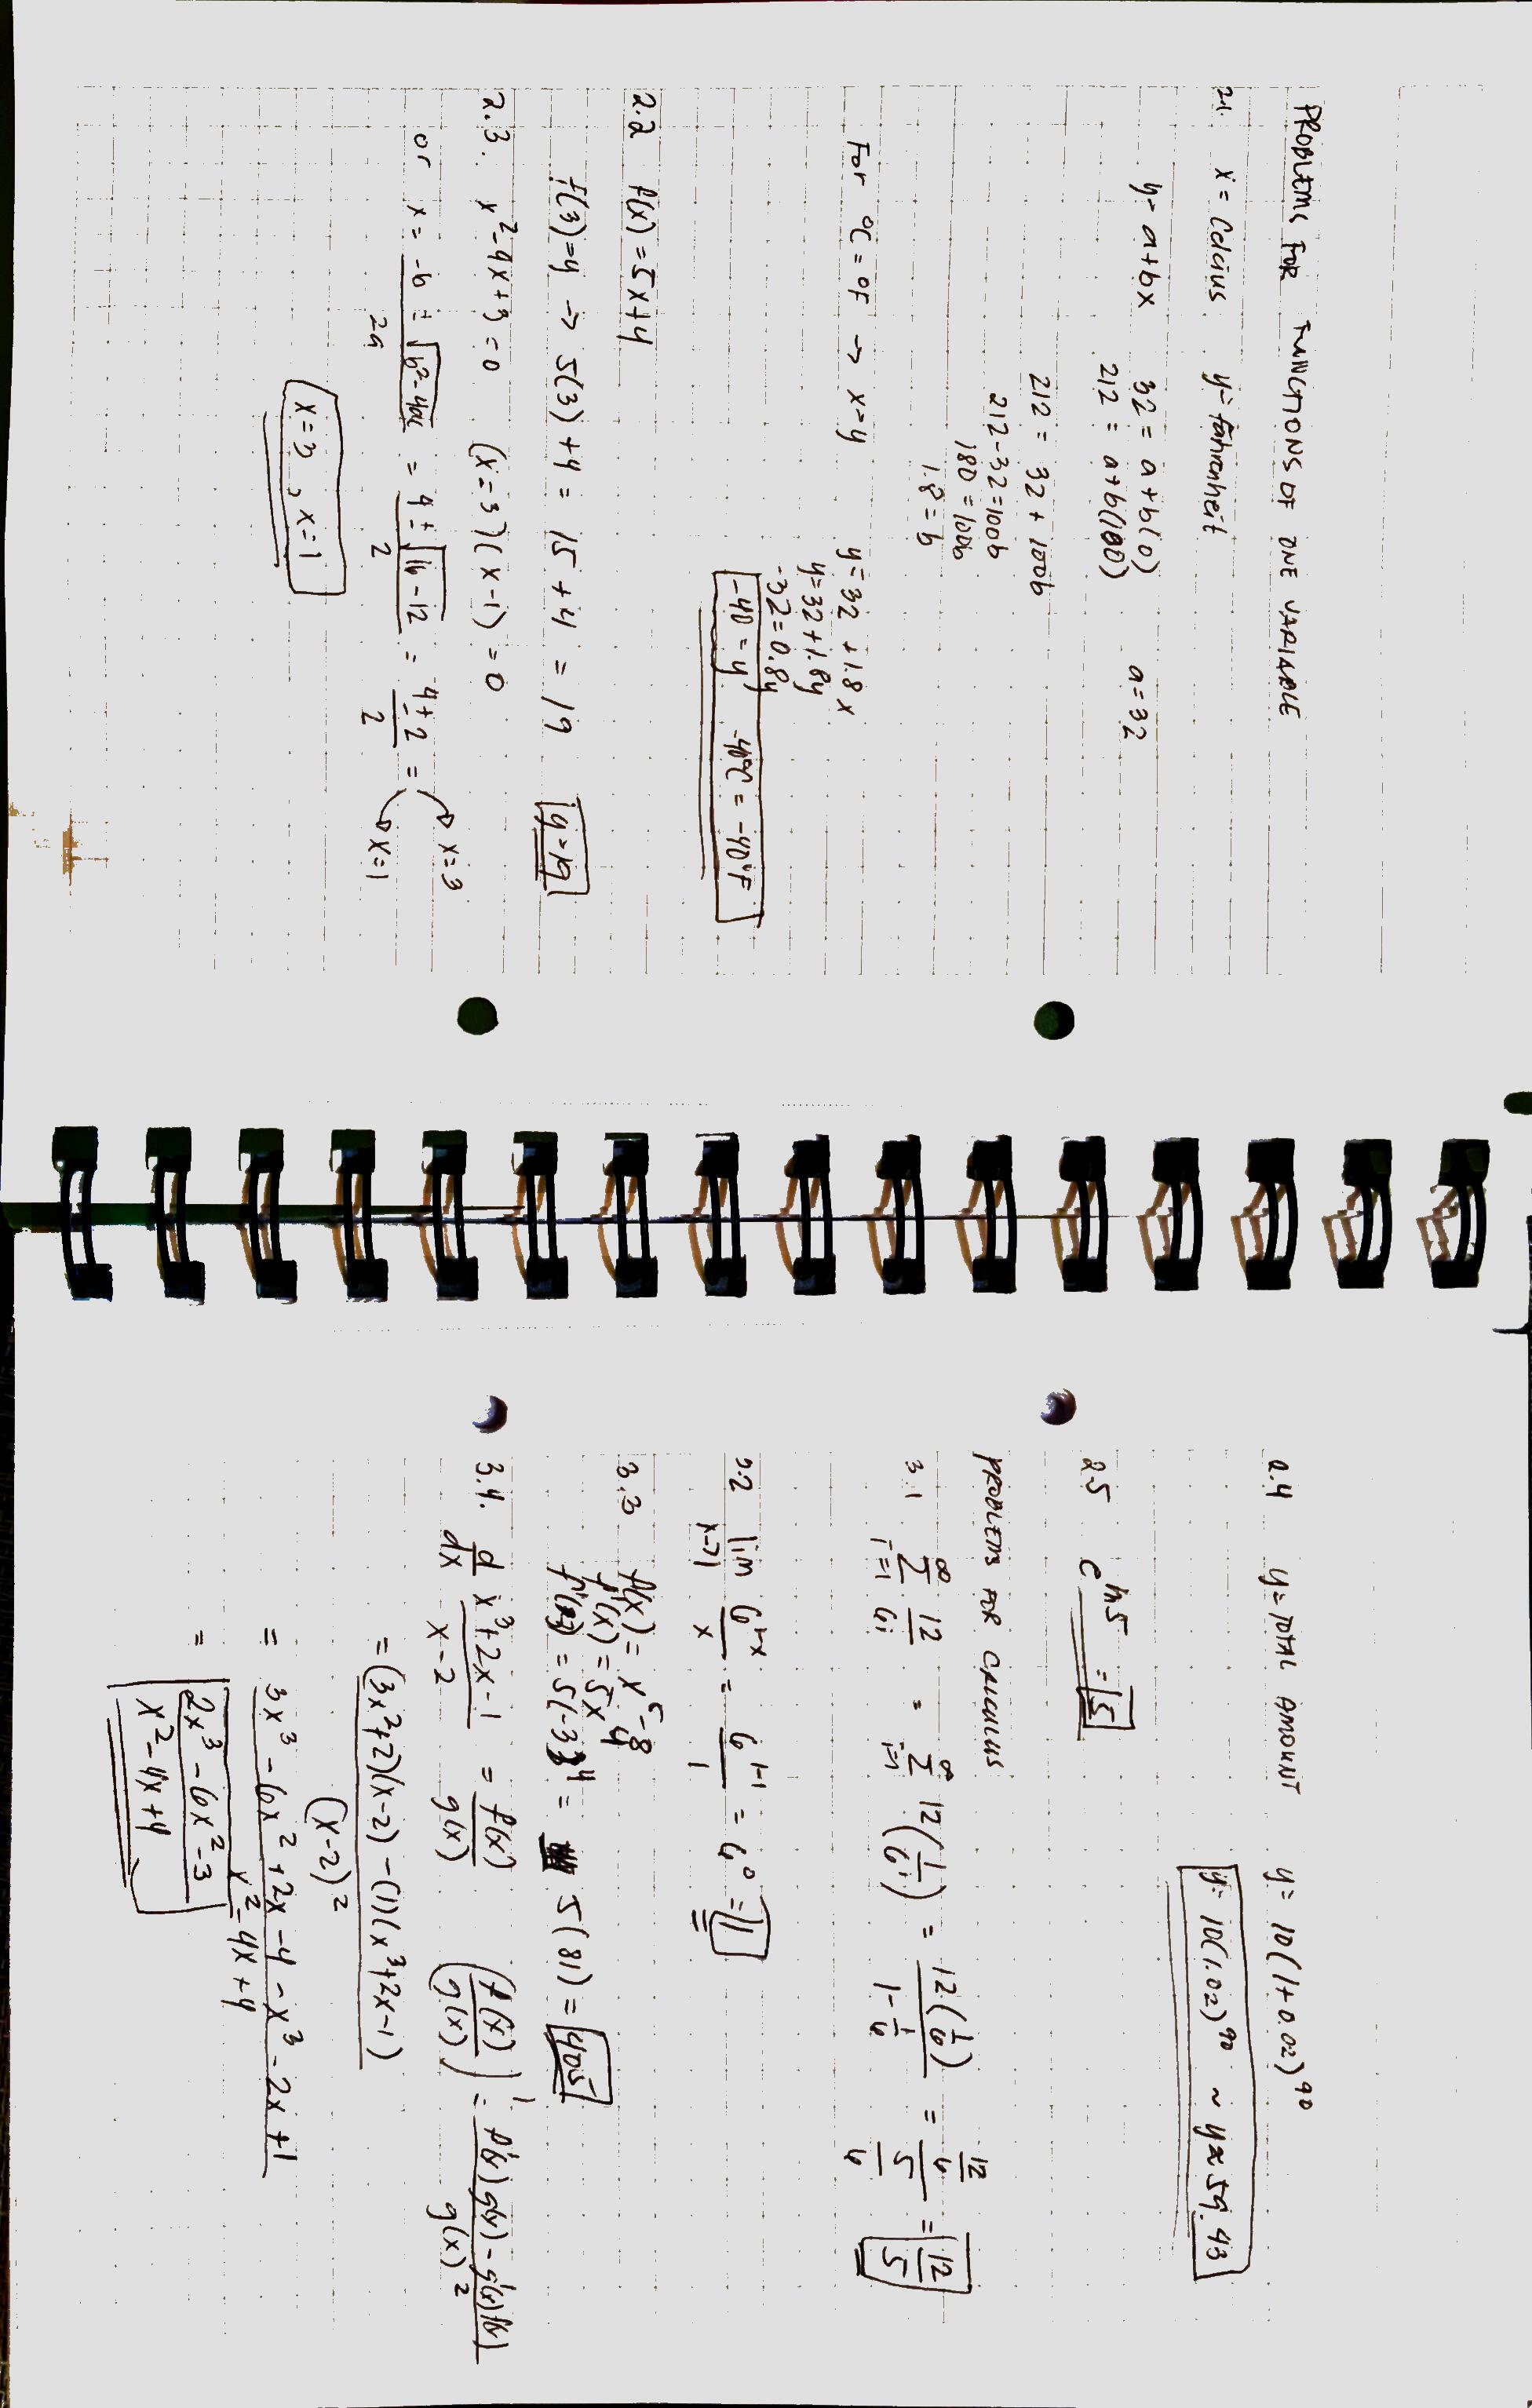 PROBLEMS FOR FUNCTIONS OF ONE VARIABLE
2.1. x = Celcius y = fahrenheit
y = a + bx 32 = a + b(0) a = 32
212 = a + b(100)
212 = 32 + 100b
212 - 32 = 100b
180 = 100b
1.8 = b
For °C = °F → x = y y = 32 + 1.8x
y = 32 + 1.8y
-32 = 0.8y
-40 = y -40°C = -40°F
2.2 f(x) = 5x + 4
f(3) = y → 5(3) + 4 = 15 + 4 = 19 y = 19
2.3. x² - 4x + 3 = 0 (x - 3)(x - 1) = 0
or x = -b ± √b² - 4ac / 2a = 4 ± √16 - 12 / 2 = 4 ± 2 / 2 = x = 3
x = 1
x = 3, x = 1
2.4 y = TOTAL AMOUNT y = 10(1 + 0.02)⁹⁰
y = 10(1.02)⁹⁰ ~ y ≈ 59.43
2.5 e^ln5 = 5
PROBLEMS FOR CALCULUS
3.1 ∞ Σ i=1 12 / 6^i = ∞ Σ i=1 12(1/6^i) = 12(1/6) / 1 - 1/6 = 12/6 / 5/6 = 12/5
3.2 lim x→1 6^x-1 / x = 6^1-1 / 1 = 6⁰ = 1
3.3 f(x) = x⁵ - 8
f'(x) = 5x⁴
f'(-3) = 5(-3)⁴ = 5(81) = 405
3.4. d/dx x³ + 2x - 1 / x - 2 = f(x) / g(x) (f(x) / g(x))' = f'(x)g(x) - g'(x)f(x) / g(x)²
= (3x² + 2)(x - 2) - (1)(x³ + 2x - 1) / (x - 2)²
= 3x³ - 6x² + 2x - 4 - x³ - 2x + 1 / x² - 4x + 4
= 2x³ - 6x² - 3 / x² - 4x + 4